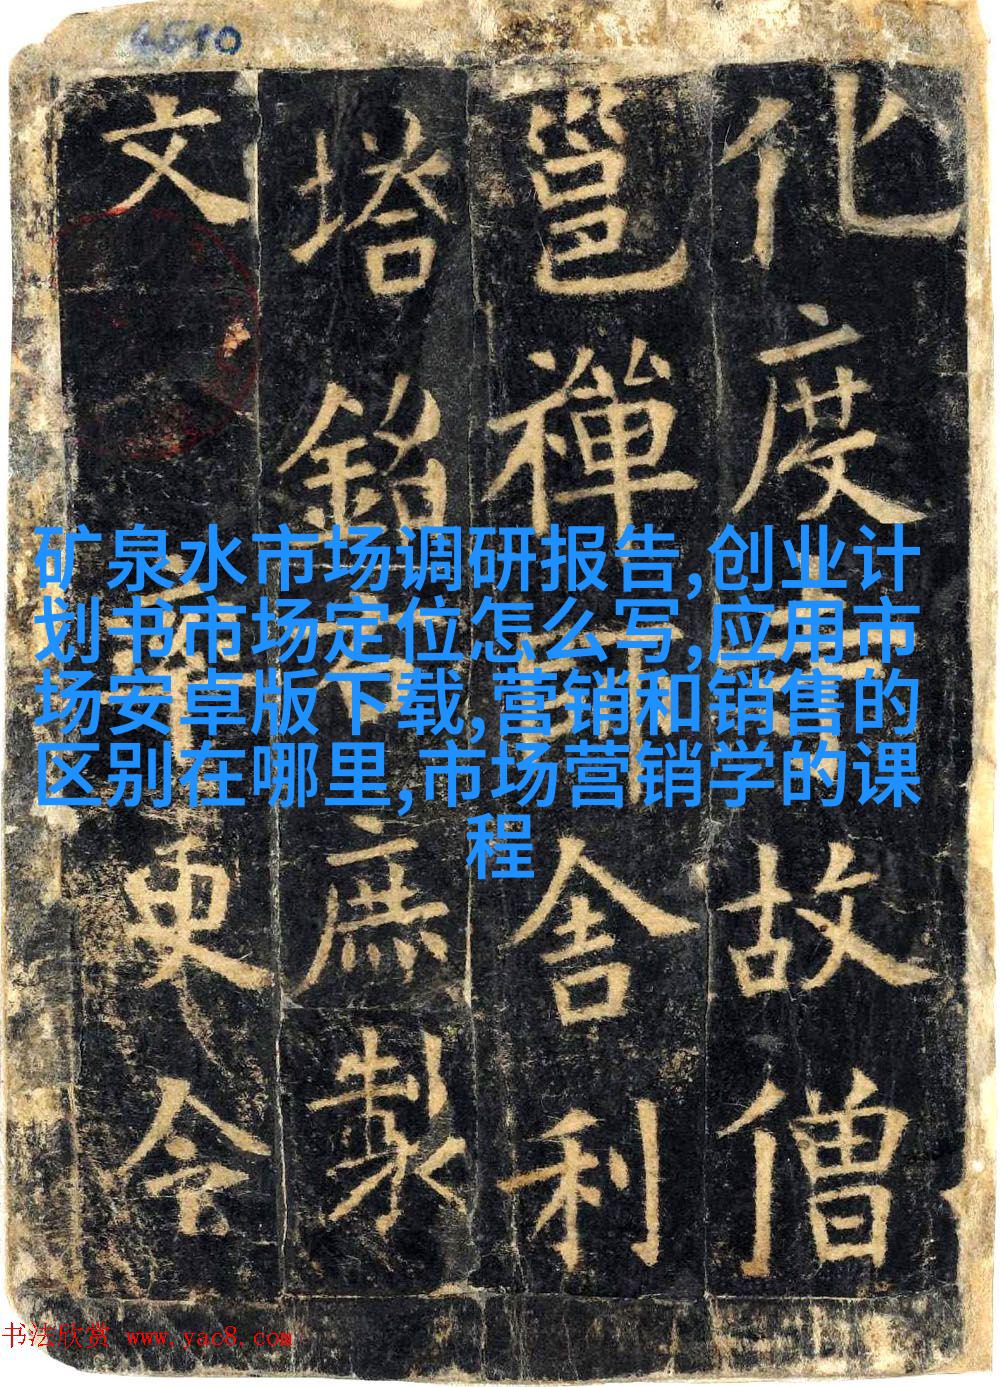 化度寺故僧
邕禪師舍利
塔銘右庶製
文率更令
矿泉水市场调研报告,创业计
划书市场定位怎么写,应用市
场安卓版下载,营销和销售的
区别在哪里,市场营销学的课
程
书法欣赏 www.yac8.com